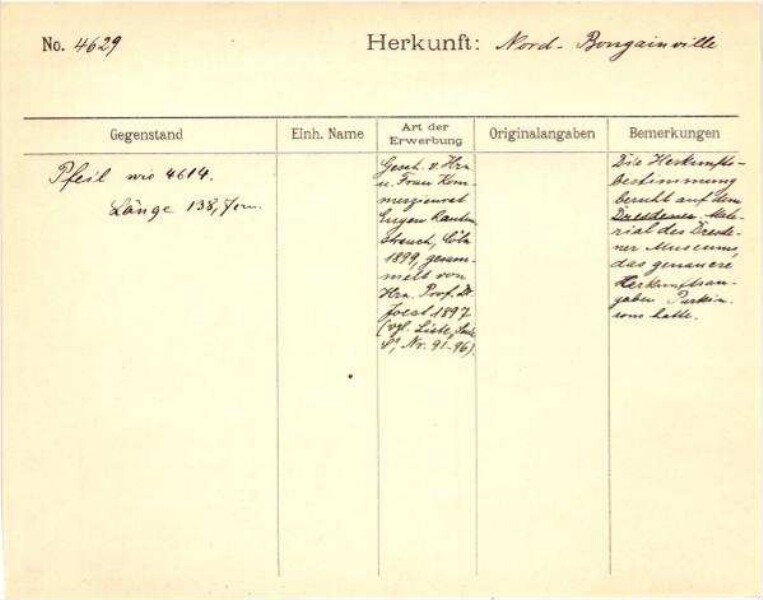 No. 4629 Herkunft: Nord-Bougainville
Gegenstand Einh. Name Art der Erwerbung Originalangaben Bemerkungen
Pfeil wie 4614.
Länge 138,7cm.
Gesch. v. Hrn
u. Frau Kom-
merzienrat
Eugen Rauten
strauch, Cöln
1899, gesam-
melt von
Hrn. Prof. Dr.
Joest 1897.
(vgl. Liste,
Nr. 91-96).
Die Herkunfts-
bestimmung
beruht auf dem
Dresdener Mate-
rial des Dresde-
ner Museums,
das genauere
Herkunftsan-
gaben Parkin-
sons hatte.